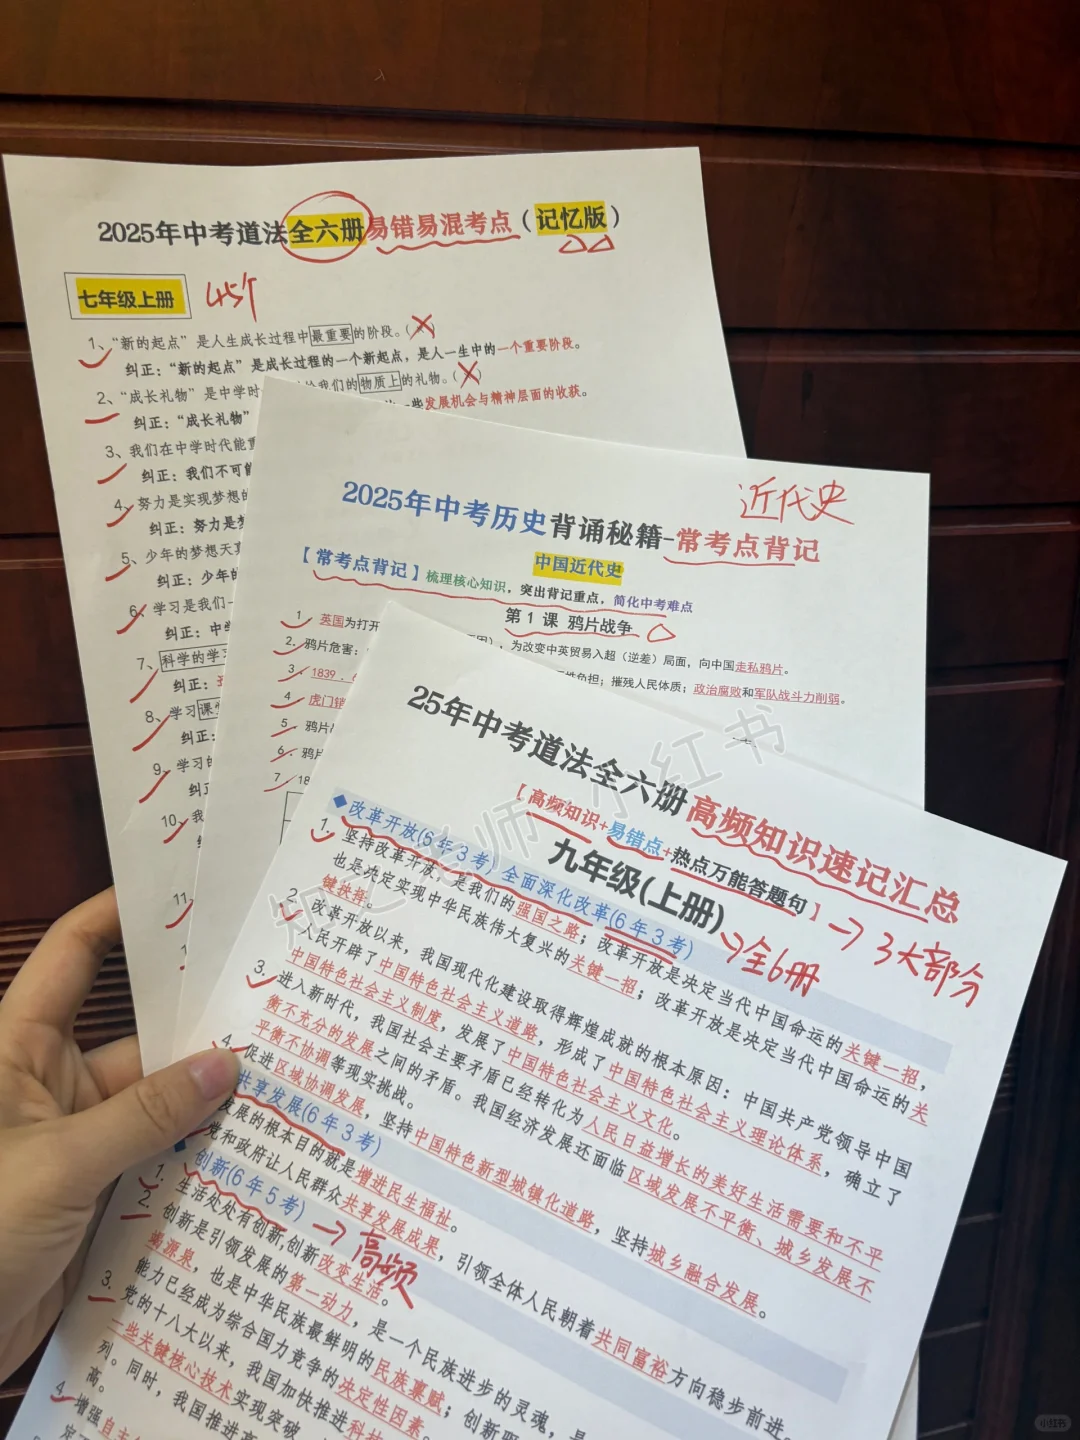 2025年中考道法全六册易错易混考点（记忆版）
七年级上册 45个
1、“新的起点”是人生成长过程中最重要的阶段。（×）
纠正：“新的起点”是成长过程的一个新起点，是人一生中的一个重要阶段。
2、“成长礼物”是中学时 给我们的物质上的礼物。（×）
纠正：“成长礼物” 一些发展机会与精神层面的收获。
3、我们在中学时代能
纠正：我们不可能
4、努力是实现梦想的
纠正：努力是
5、少年的梦想天真
纠正：少年的
6、学习是我们
纠正：中学
7、科学的学习
纠正：
8、学习课堂
纠正：
9、学习的
纠正
10、我
11、
近代史
2025年中考历史背诵秘籍-常考点背记
中国近代史
【常考点背记】梳理核心知识，突出背记重点，简化中考难点
第 1 课 鸦片战争
1 英国为打开 ，为改变中英贸易入超（逆差）局面，向中国走私鸦片。
2. 鸦片危害： 负担；摧残人民体质；政治腐败和军队战斗力削弱。
3. 1839.6
4 虎门销
5. 鸦片
6. 鸦片
7 18
25年中考道法全六册高频知识速记汇总
【高频知识+易错点+热点万能答题句】→3大部分
九年级(上册) →全6册
◆改革开放(6年3考) 全面深化改革(6年3考)
1. 坚持改革开放，是我们的强国之路；改革开放是决定当代中国命运的关键一招，
也是决定实现中华民族伟大复兴的关键一招；改革开放是决定当代中国命运的关
键抉择。
2. 改革开放以来，我国现代化建设取得辉煌成就的根本原因：中国共产党领导中国
人民开辟了中国特色社会主义道路，形成了中国特色社会主义理论体系，确立了
中国特色社会主义制度，发展了中国特色社会主义文化。
3. 进入新时代，我国社会主要矛盾已经转化为人民日益增长的美好生活需要和不平
衡不充分的发展之间的矛盾。我国经济发展还面临区域发展不平衡、城乡发展不
平衡不协调等现实挑战。
4. 促进区域协调发展，坚持中国特色新型城镇化道路，坚持城乡融合发展。
共享发展(6年3考)
发展的根本目的就是增进民生福祉。
党和政府让人民群众共享发展成果，引领全体人民朝着共同富裕方向稳步前进。
◆创新(6年5考) →高频
1. 生活处处有创新,创新改变生活。
2. 创新是引领发展的第一动力，是一个民族进步的灵魂，是
竭源泉，也是中华民族最鲜明的民族禀赋；创新
能力已经成为综合国力竞争的决定性因素。
3. 党的十八大以来，我国加快推进科技
一些关键核心技术实现突破，
列。同时，我国推进高
高。
4. 增强自主
小红书